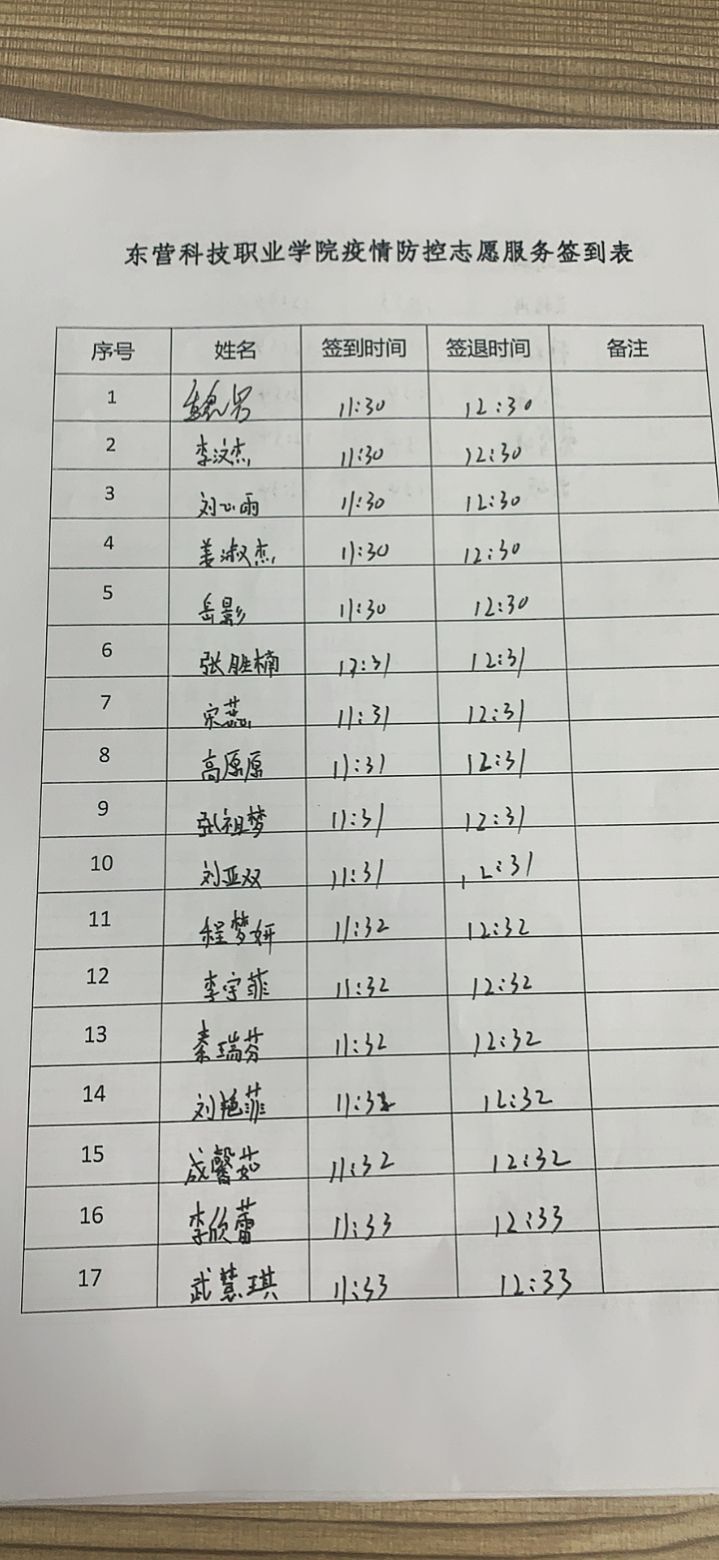 东营科技职业学院疫情防控志愿服务签到表
序号 姓名 签到时间 签退时间 备注
1 男 11:30 12:30
2 李汶杰 11:30 12:30
3 刘心雨 11:30 12:30
4 姜淑杰 11:30 12:30
5 岳影 11:30 12:30
6 张胜楠 12:31 12:31
7 宋蕊 11:31 12:31
8 高原原 11:31 12:31
9 张祖梦 11:31 12:31
10 刘亚双 11:31 12:31
11 程梦妍 11:32 12:32
12 李宇菲 11:32 12:32
13 秦瑞芬 11:32 12:32
14 刘艳菲 11:32 12:32
15 成馨茹 11:32 12:32
16 李欣蕾 11:33 12:33
17 武慧琪 11:33 12:33